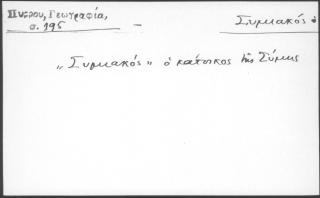 Πύρρου, Γεωγραφία,
σ. 195 – Συμιακός ὁ
„Συμιακός" ὁ κάτοικος τῆς Σύμης